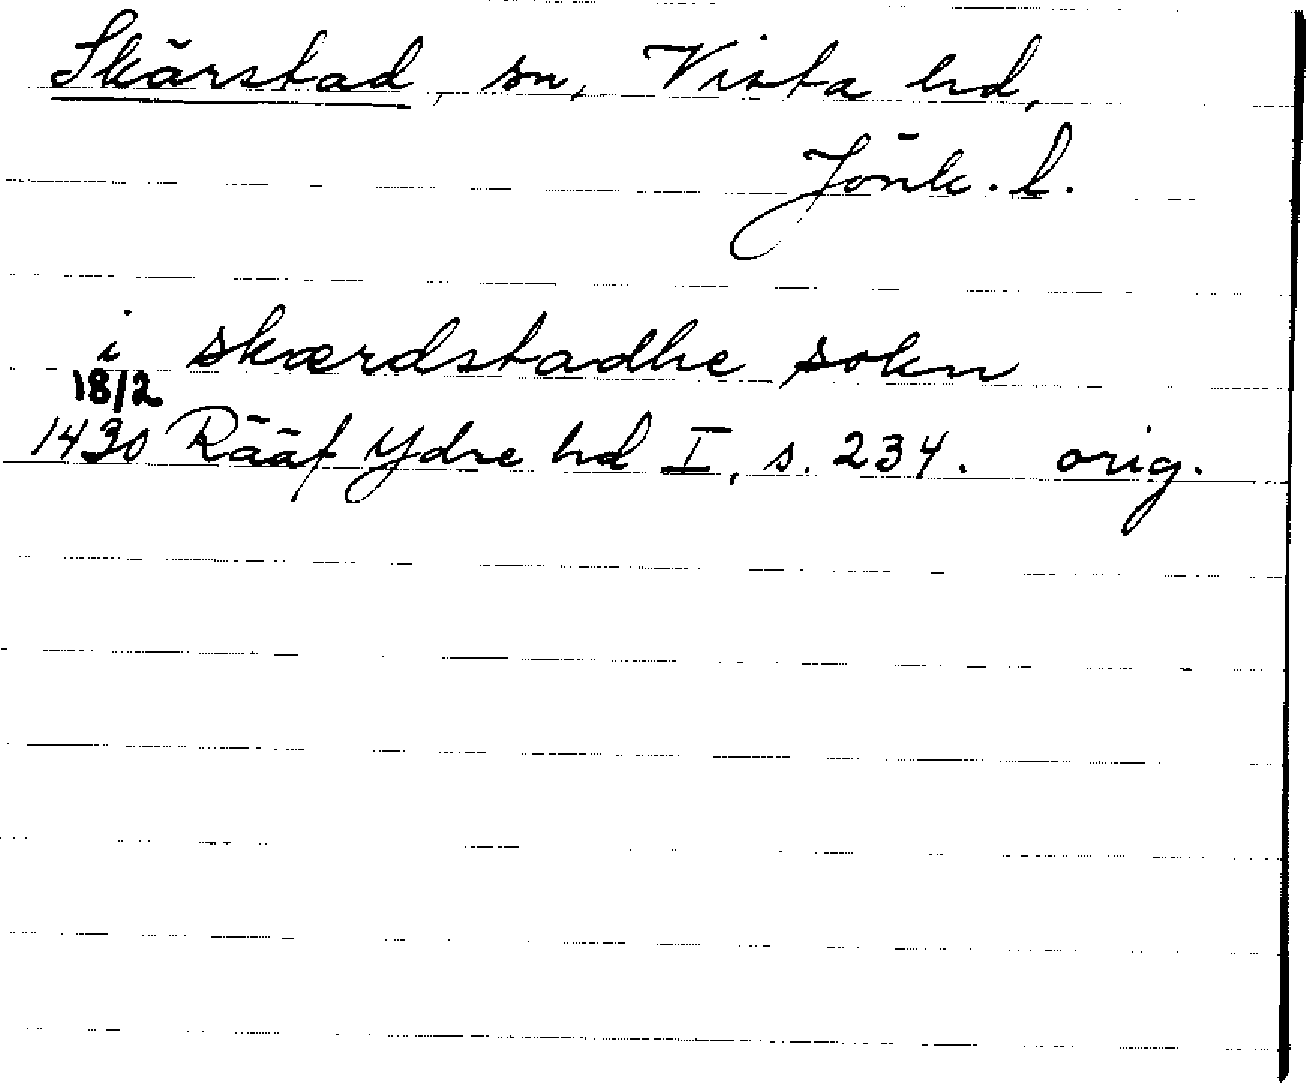 Skärstad, sn, Vista hd,
Jönk. l.
i skærdstadhe sokn
18/2
1430 Rääf Ydre hd I, s. 234. orig.